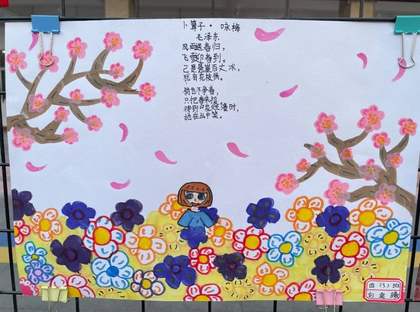 卜算子·咏梅
毛泽东
风雨送春归，
飞雪迎春到，
已是悬崖百丈冰，
犹有花枝俏。
俏也不争春，
只把春来报，
待到山花烂漫时，
她在丛中笑。